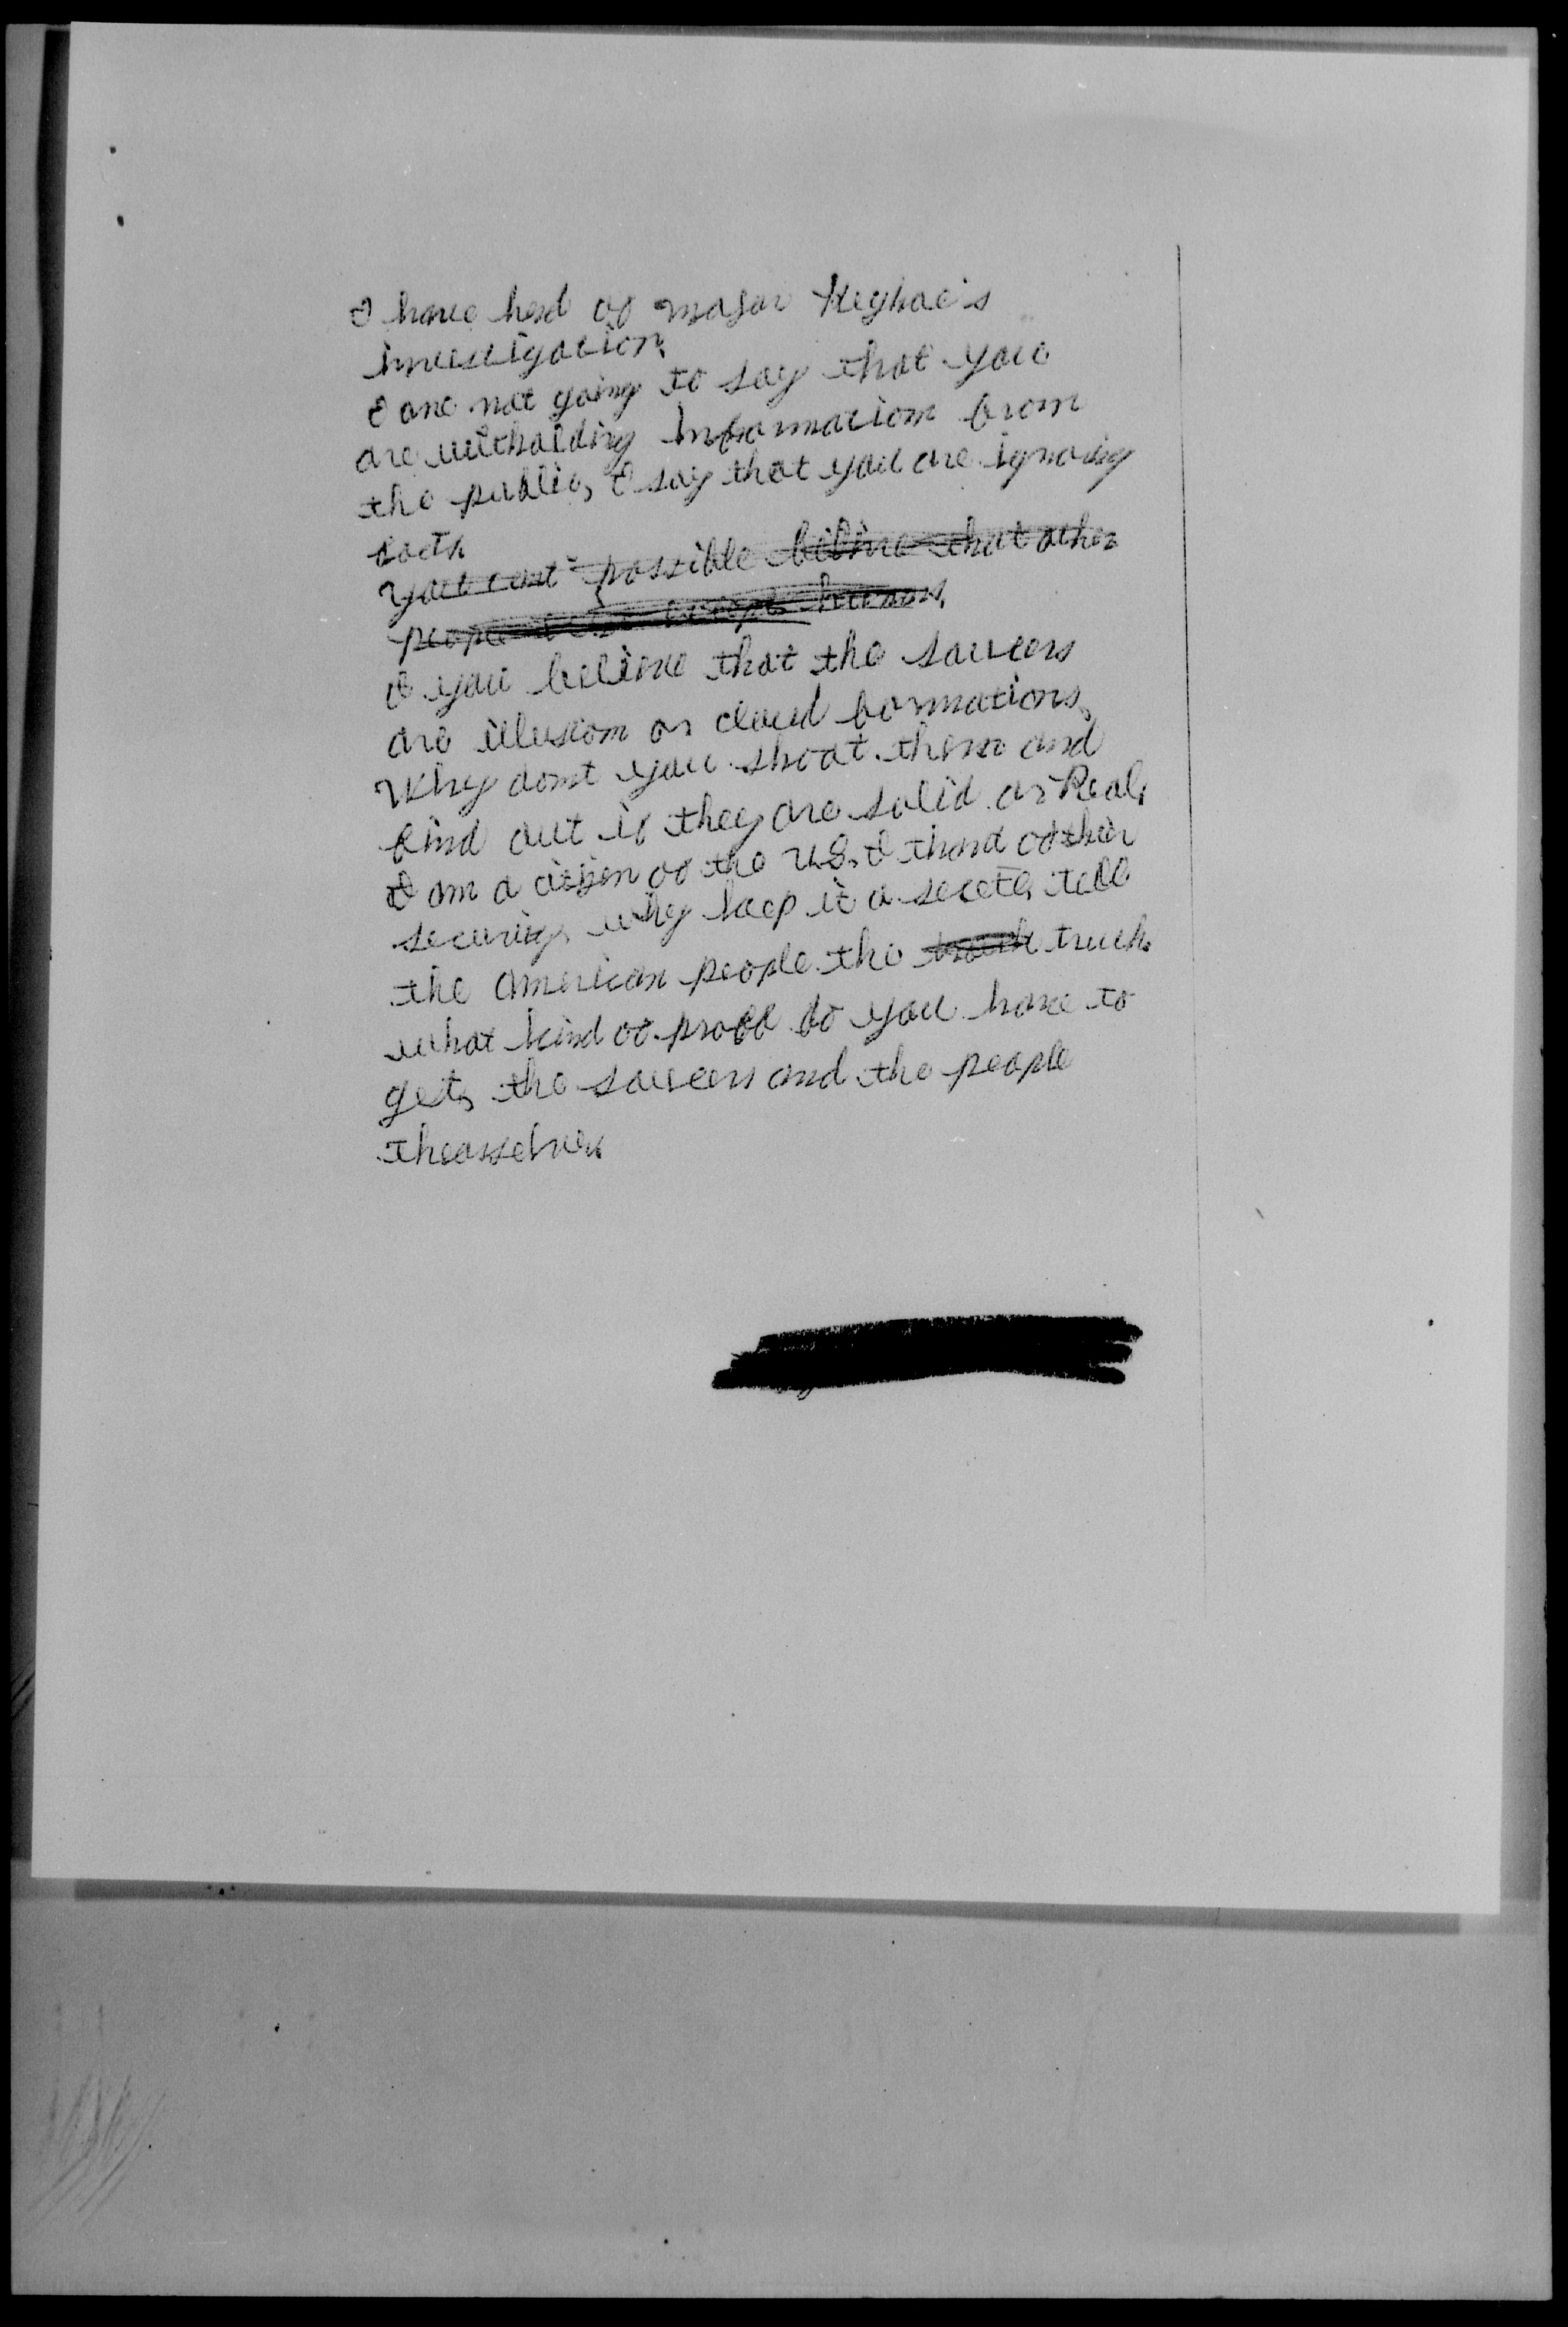 I have herd of major Keyhoe's
investigation,
I one not going to say that you
are witholding information from
the public, I say that you are ignoring
facts
You cant possible belive that other
people humans,
If you believe that the saucers
are illusion or cloud formations,
Why dont you shoot them and
find out if they are solid or Real,
I am a citizen of the U.S, I of their
security, why keep it a secete, tell
the american people the truth truth.
what kind of proff do you have to
get, the saucers and the people
theasselves